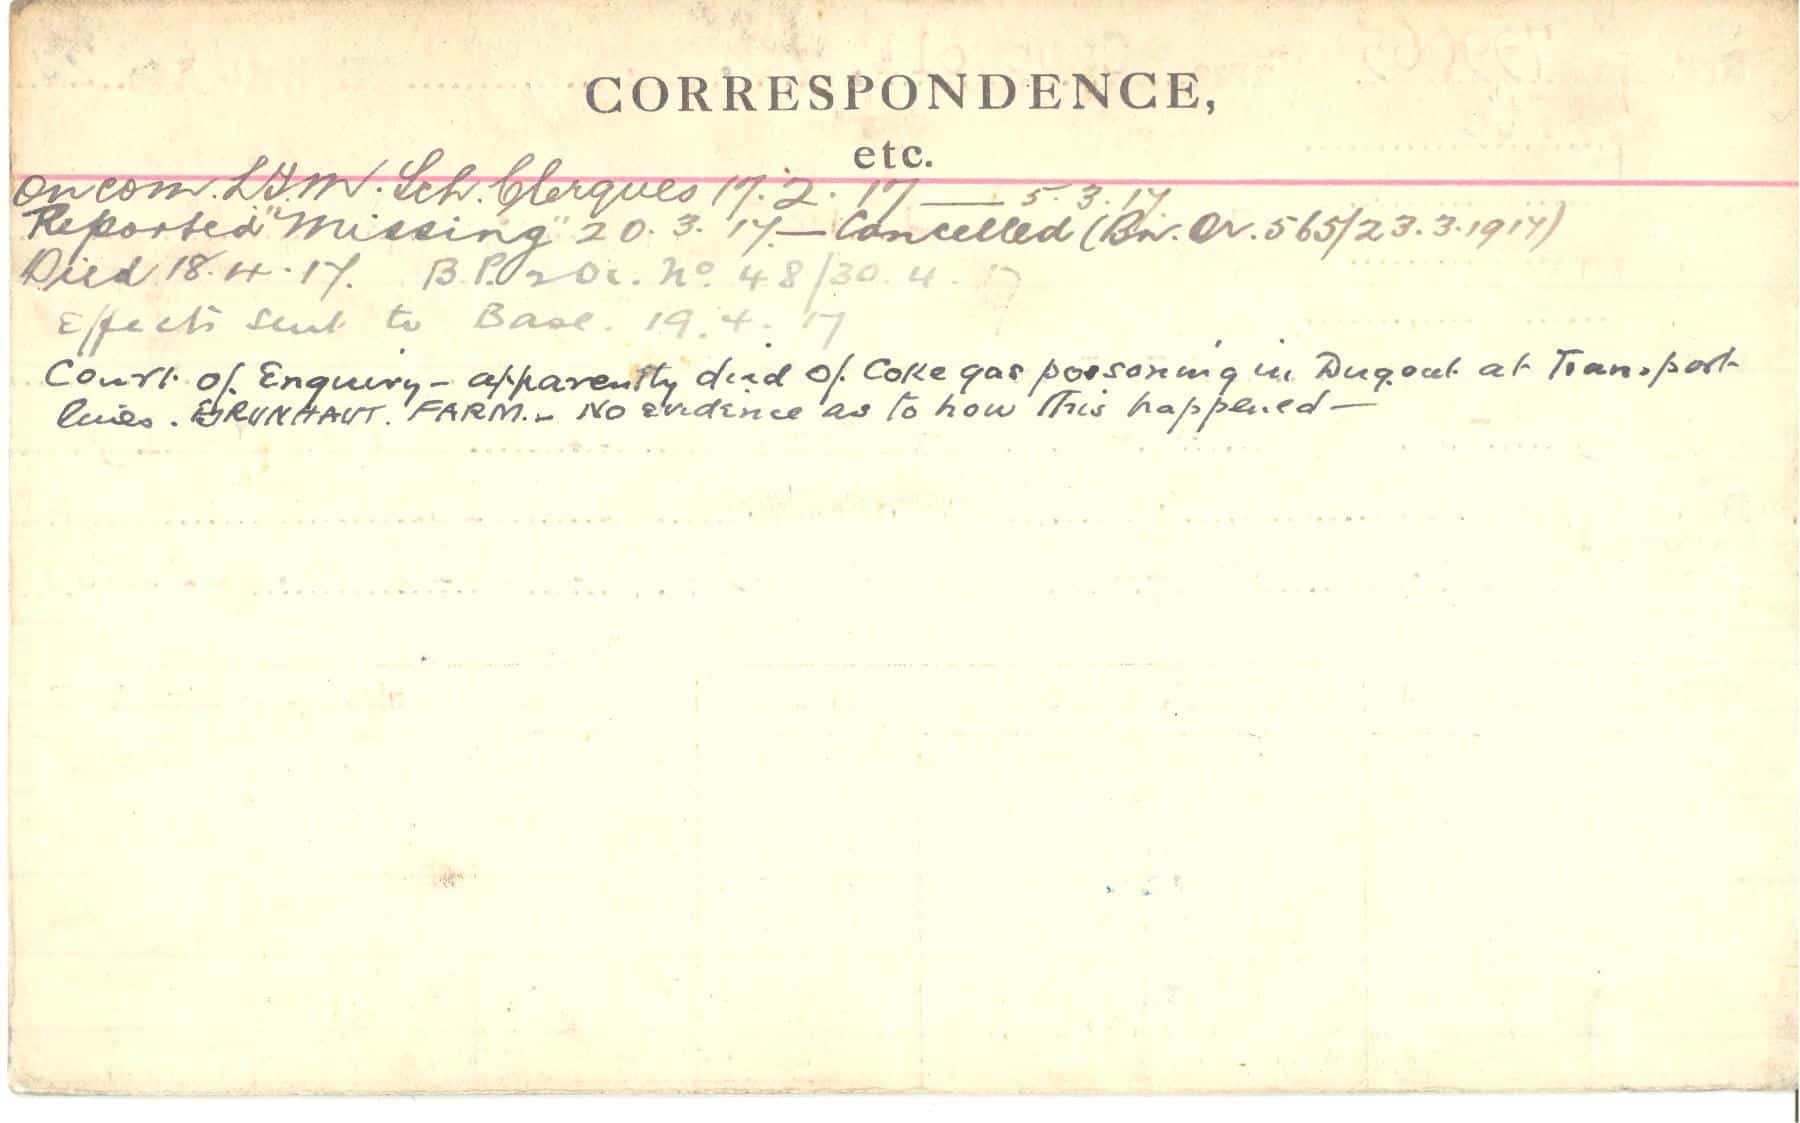 CORRESPONDENCE,
etc.
on com. L.T.M. Sch. Clarques 17.2.17 — 5.3.17
Reported "Missing" 20.3.17 — Cancelled (Bn. Or. 565/23.3.1917)
Died 18.4.17. B.P. 2 Or. No 48/30.4.17
Effects sent to Base. 19.4.17
Court of Enquiry – apparently died of Coke gas poisoning in Dugout at Transport
lines. BRUNHAUT. FARM. – No evidence as to how this happened —